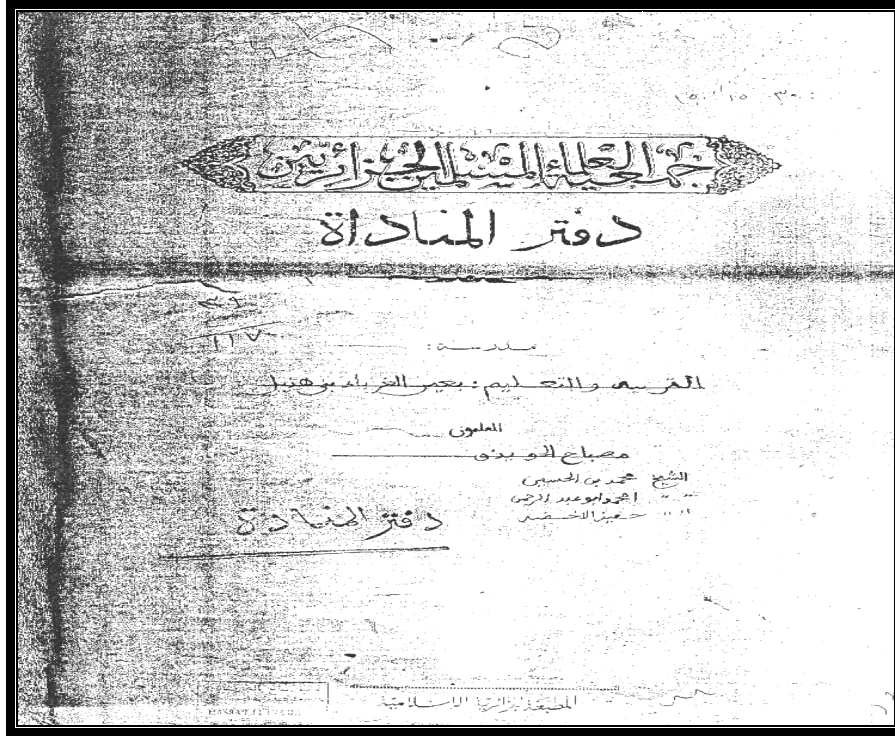 جمعية العلماء المسلمين الجزائريين
دفتر المناداة
٣٦
١١٧
مدرسة :
والتعليم : بعين الغرباء بن هديل
المعلمون
مصباح الحويذق
الشيخ محمد بن الحسين
" " احمد ابو عبد الرحمن
" " الاخضر
دفتر المناداة
المطبعة الجزائرية الاسلامية